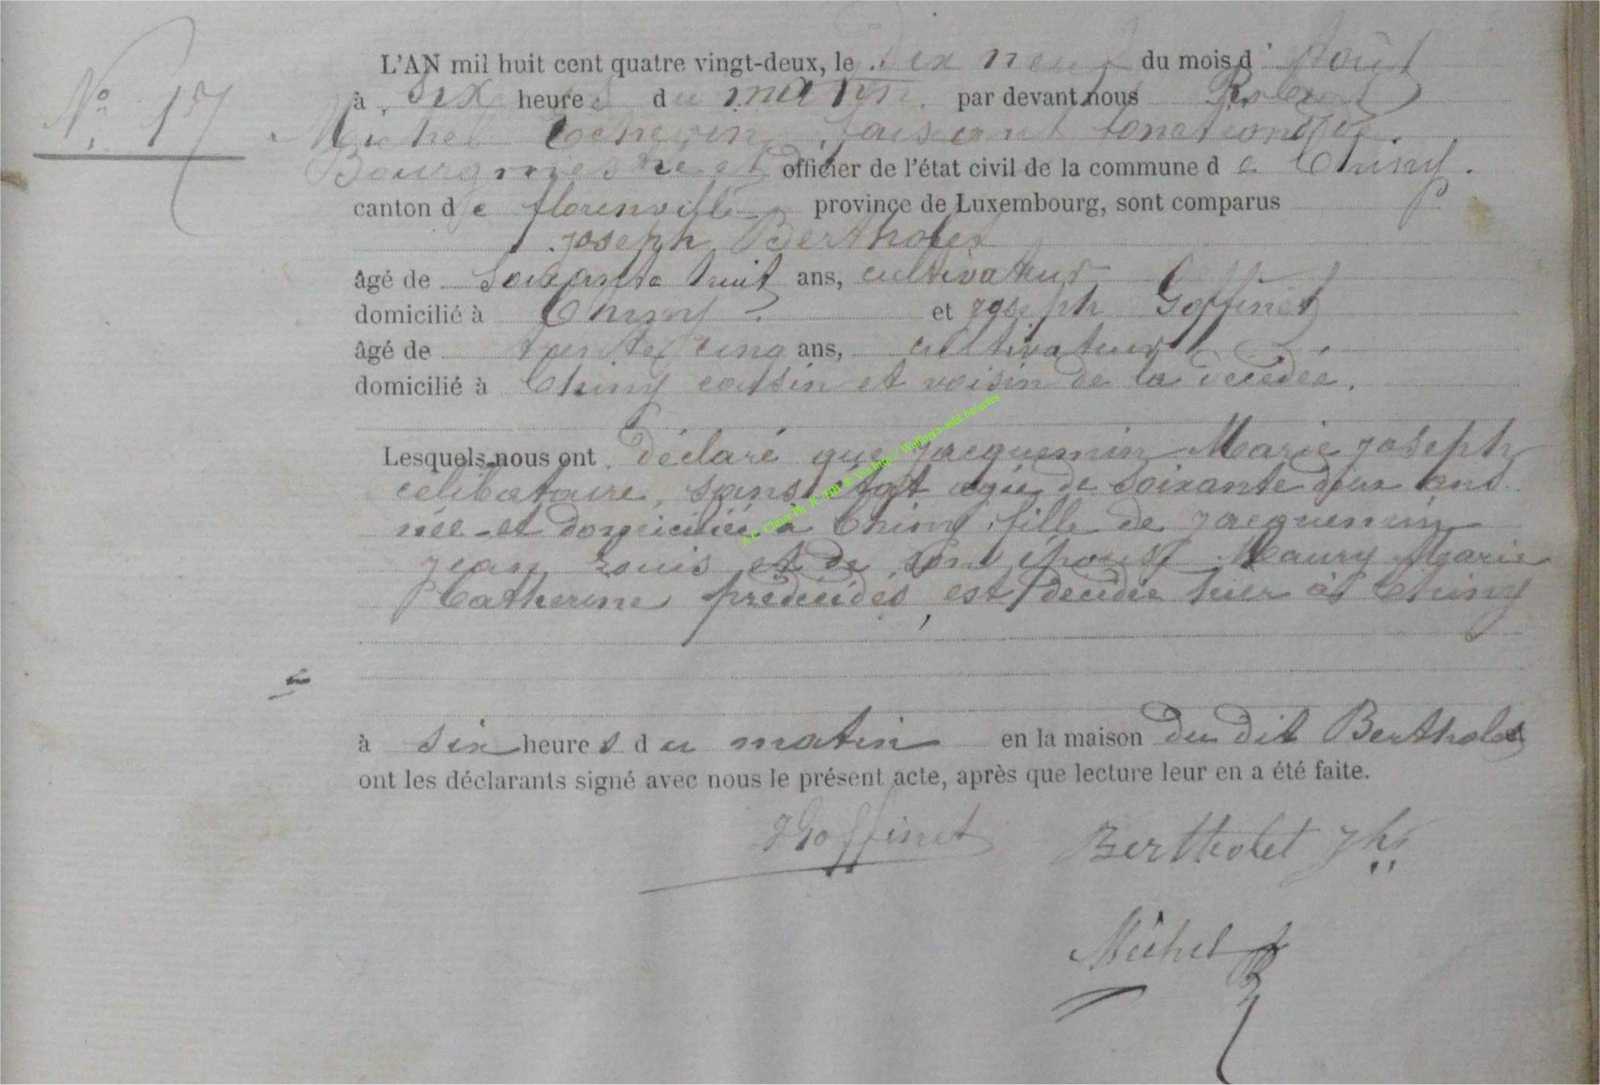 N° 17
L'AN mil huit cent quatre vingt-deux, le dix neuf du mois d' Août
à six heures du matin par devant nous
Michel Echevin, faisant fonctions de
Bourgmestre et officier de l'état civil de la commune de Chiny.
canton de florenville province de Luxembourg, sont comparus
joseph Bertholet
âgé de soixante huit ans, cultivateur
domicilié à Chiny. et joseph Goffinet
âgé de trente cinq ans, cultivateur
domicilié à Chiny cousin et voisin de la décédée.
Lesquels nous ont déclaré que jacquemin Marie joseph
célibataire, sans état agée de soixante deux ans
née et domiciliée à Chiny, fille de jacquemin
jean Louis et de son épouse Maury Marie
Catherine prédécédés, est décédée hier à Chiny
à six heures du matin en la maison du dit Bertholet
ont les déclarants signé avec nous le présent acte, après que lecture leur en a été faite.
JGoffinet Bertholet Jh
Michel